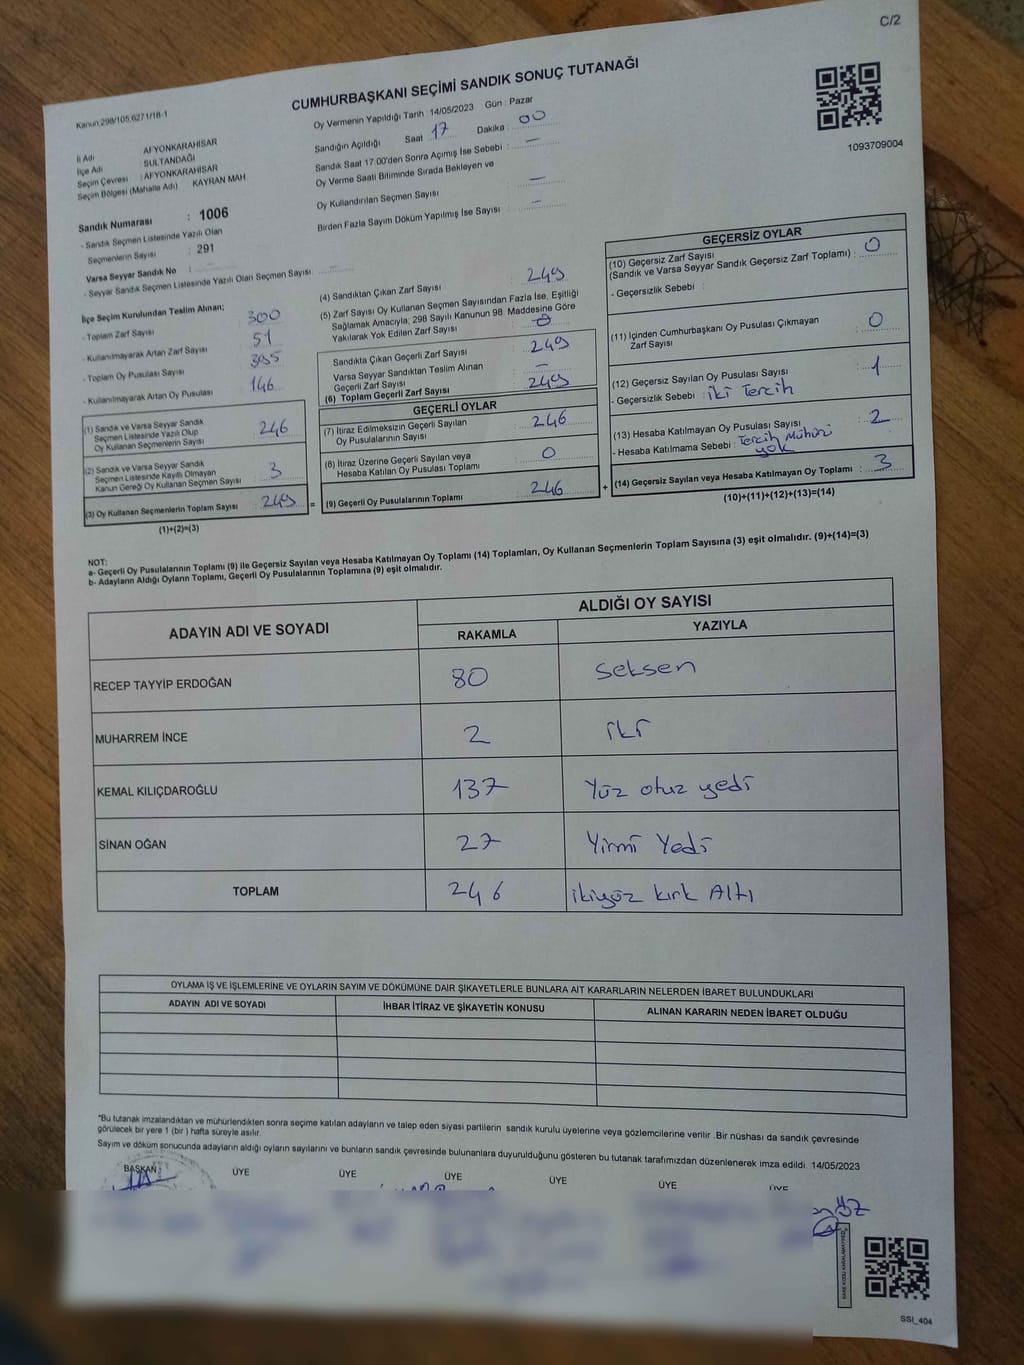 C/2
CUMHURBAŞKANI SEÇİMİ SANDIK SONUÇ TUTANAĞI
Kanun:298/105,6271/18-1
Oy Vermenin Yapıldığı Tarih : 14/05/2023 Gün : Pazar
Sandığın Açıldığı Saat : 17 Dakika : 00
Sandık Saat 17:00'den Sonra Açımış İse Sebebi : —
Oy Verme Saati Bitiminde Sırada Bekleyen ve
Oy Kullandırılan Seçmen Sayısı : —
Birden Fazla Sayım Döküm Yapılmış İse Sayısı : —
1093709004
İl Adı : AFYONKARAHİSAR
İlçe Adı : SULTANDAĞI
Seçim Çevresi : AFYONKARAHİSAR
Seçim Bölgesi (Mahalle Adı) : KAYRAN MAH
Sandık Numarası : 1006
- Sandık Seçmen Listesinde Yazılı Olan
Seçmenlerin Sayısı : 291
Varsa Seyyar Sandık No :
- Seyyar Sandık Seçmen Listesinde Yazılı Olan Seçmen Sayısı :
İlçe Seçim Kurulundan Teslim Alınan;
- Toplam Zarf Sayısı : 300
- Kullanılmayarak Artan Zarf Sayısı : 51
- Toplam Oy Pusulası Sayısı : 395
- Kullanılmayarak Artan Oy Pusulası : 146
(1) Sandık ve Varsa Seyyar Sandık
Seçmen Listesinde Yazılı Olup
Oy Kullanan Seçmenlerin Sayısı : 246
(2) Sandık ve Varsa Seyyar Sandık
Seçmen Listesinde Kayıtlı Olmayan
Kanun Gereği Oy Kullanan Seçmen Sayısı : 3
(3) Oy Kullanan Seçmenlerin Toplam Sayısı : 249
(1)+(2)=(3)
(4) Sandıktan Çıkan Zarf Sayısı : 249
(5) Zarf Sayısı Oy Kullanan Seçmen Sayısından Fazla İse, Eşitliği
Sağlamak Amacıyla, 298 Sayılı Kanunun 98. Maddesine Göre
Yakılarak Yok Edilen Zarf Sayısı : 0
Sandıkta Çıkan Geçerli Zarf Sayısı : 249
Varsa Seyyar Sandıktan Teslim Alınan
Geçerli Zarf Sayısı : —
(6) Toplam Geçerli Zarf Sayısı : 249
GEÇERLİ OYLAR
(7) İtiraz Edilmeksizin Geçerli Sayılan
Oy Pusulalarının Sayısı : 246
(8) İtiraz Üzerine Geçerli Sayılan veya
Hesaba Katılan Oy Pusulası Toplamı : 0
(9) Geçerli Oy Pusulalarının Toplamı : 246
GEÇERSİZ OYLAR
(10) Geçersiz Zarf Sayısı
(Sandık ve Varsa Seyyar Sandık Geçersiz Zarf Toplamı) : 0
- Geçersizlik Sebebi :
(11) İçinden Cumhurbaşkanı Oy Pusulası Çıkmayan
Zarf Sayısı : 0
(12) Geçersiz Sayılan Oy Pusulası Sayısı : 1
- Geçersizlik Sebebi : iki Tercih
(13) Hesaba Katılmayan Oy Pusulası Sayısı : 2
- Hesaba Katılmama Sebebi : Tercih Mühürü
yok
(14) Geçersiz Sayılan veya Hesaba Katılmayan Oy Toplamı : 3
(10)+(11)+(12)+(13)=(14)
NOT:
a- Geçerli Oy Pusulalarının Toplamı (9) ile Geçersiz Sayılan veya Hesaba Katılmayan Oy Toplamı (14) Toplamları, Oy Kullanan Seçmenlerin Toplam Sayısına (3) eşit olmalıdır. (9)+(14)=(3)
b- Adayların Aldığı Oyların Toplamı, Geçerli Oy Pusulalarının Toplamına (9) eşit olmalıdır.
ADAYIN ADI VE SOYADI
ALDIĞI OY SAYISI
RAKAMLA YAZIYLA
RECEP TAYYİP ERDOĞAN 80 seksen
MUHARREM İNCE 2 iki
KEMAL KILIÇDAROĞLU 137 Yüz otuz yedi
SİNAN OĞAN 27 Yirmi Yedi
TOPLAM 246 ikiyüz kırk Altı
OYLAMA İŞ VE İŞLEMLERİNE VE OYLARIN SAYIM VE DÖKÜMÜNE DAİR ŞİKAYETLERLE BUNLARA AİT KARARLARIN NELERDEN İBARET BULUNDUKLARI
ADAYIN ADI VE SOYADI İHBAR İTİRAZ VE ŞİKAYETİN KONUSU ALINAN KARARIN NEDEN İBARET OLDUĞU
*Bu tutanak imzalandıktan ve mühürlendikten sonra seçime katılan adayların ve talep eden siyasi partilerin sandık kurulu üyelerine veya gözlemcilerine verilir. Bir nüshası da sandık çevresinde
görülecek bir yere 1 (bir ) hafta süreyle asılır.
Sayım ve döküm sonucunda adayların aldığı oyların sayılarını ve bunların sandık çevresinde bulunanlara duyurulduğunu gösteren bu tutanak tarafımızdan düzenlenerek imza edildi. 14/05/2023
BAŞKAN ÜYE ÜYE ÜYE ÜYE ÜYE ÜYE
SSI_404